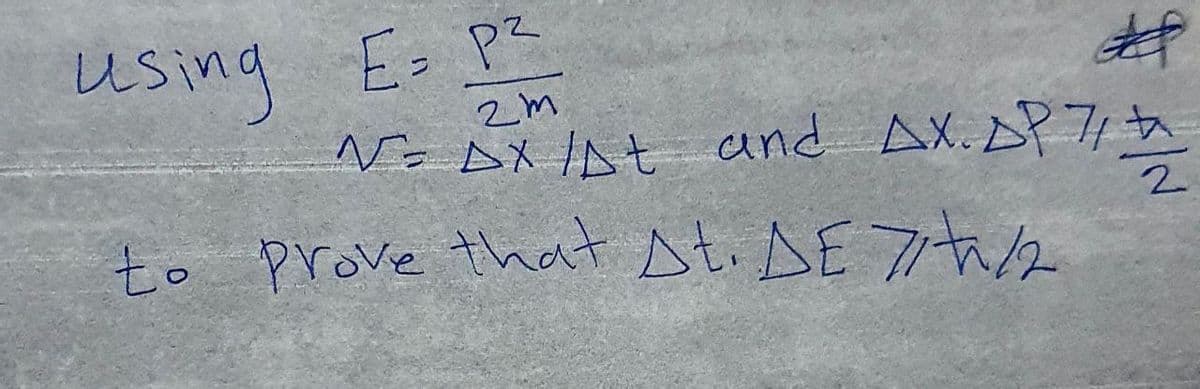 using E = P²/2m
v = Δx/Δt and Δx.ΔP ≥ ħ/2
to prove that Δt.ΔE ≥ ħ/2